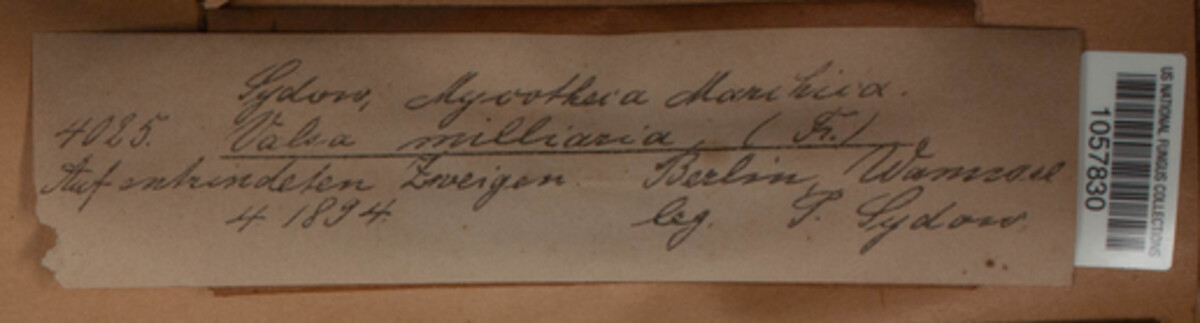 Sydow, Mycotheca Marchica.
4025. Valsa milliaria (Fr.)
Auf entrindeten Zweigen. Berlin, Wannsee
4 1894. leg. P. Sydow.
US NATIONAL FUNGUS COLLECTIONS
1057830